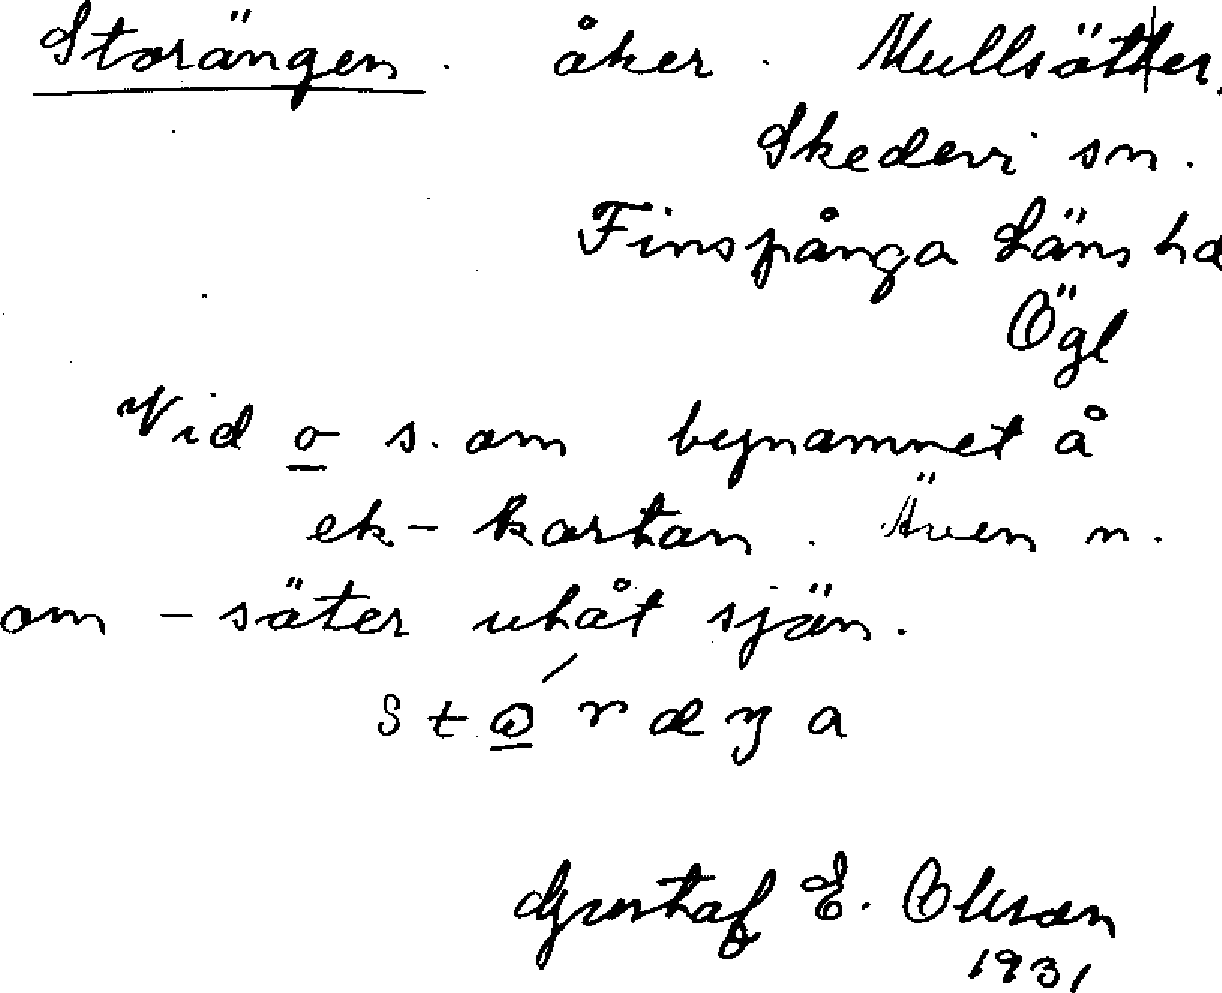 Storängen. åker. Mullsätter,
Skedevi sn.
Finspånga Läns hd
Ögl
Vid o s. om bynamnet å
ek-kartan. Även n.
om -säter utåt sjön.
Gustaf E. Olsson
1931